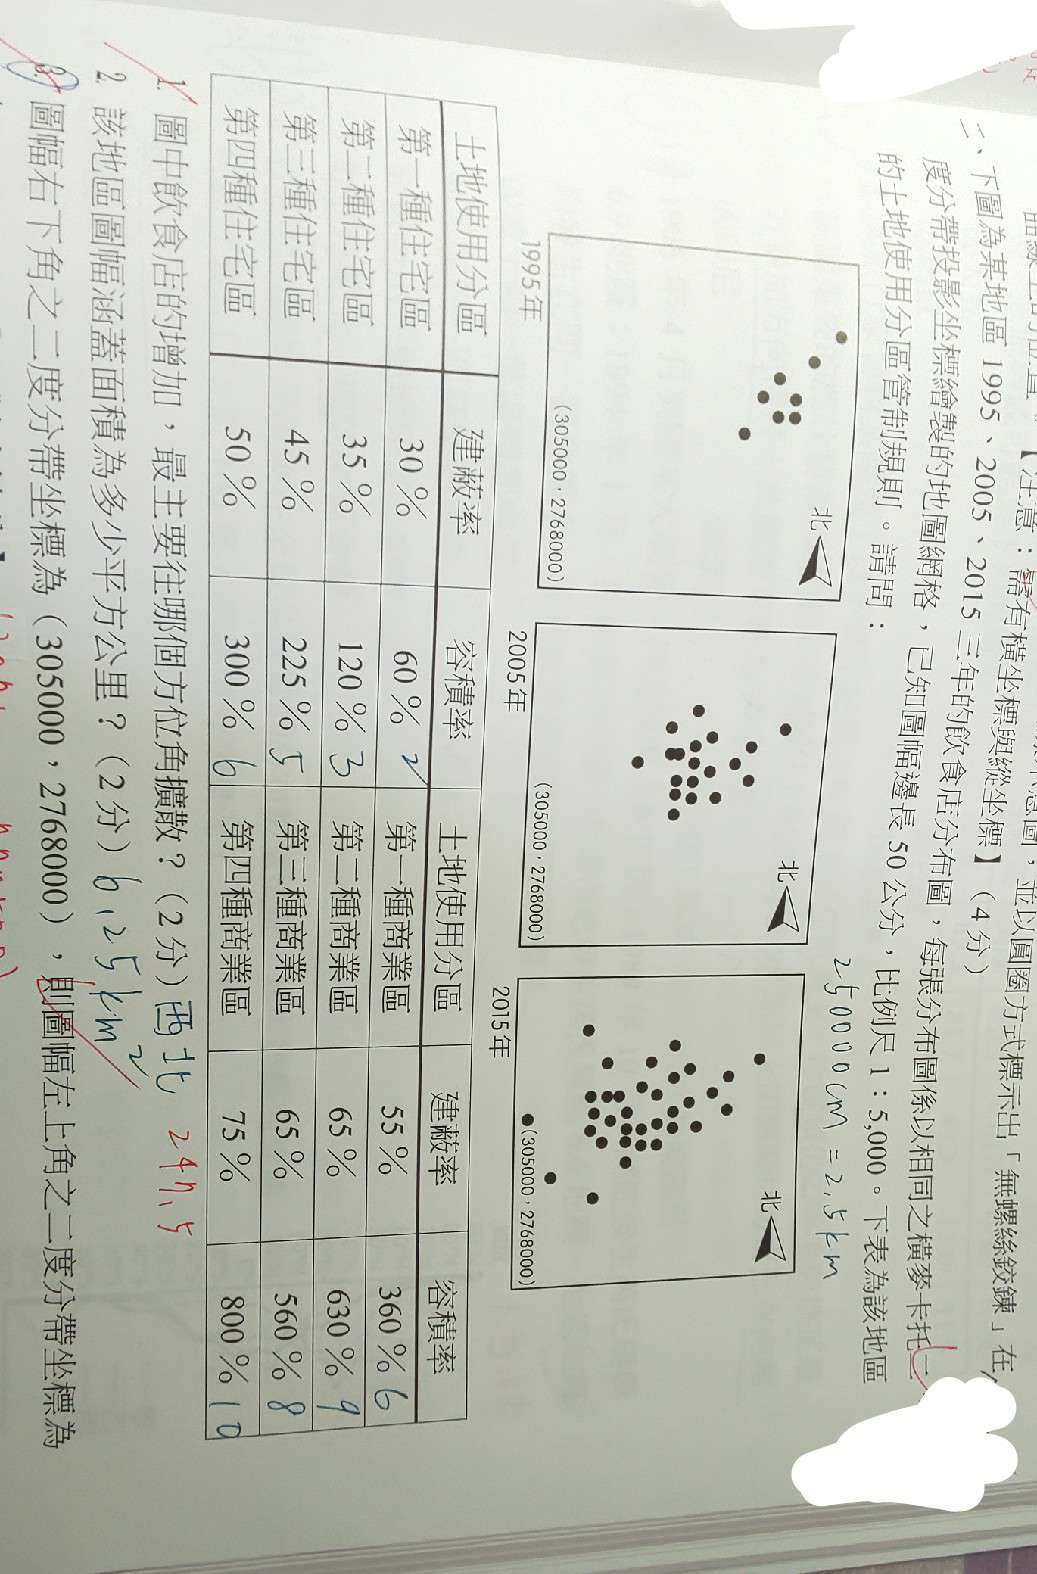 【注意：需有橫坐標與縱坐標】（4分）
二、下圖為某地區1995、2005、2015三年的飲食店分布圖，每張分布圖係以相同之橫麥卡托二
度分帶投影坐標繪製的地圖網格，已知圖幅邊長50公分，比例尺1：5,000。下表為該地區
的土地使用分區管制規則。請問：
250000cm = 2.5km
北
北
北
(305000，2768000)
(305000，2768000)
(305000，2768000)
1995年
2005年
2015年
土地使用分區 建蔽率 容積率 土地使用分區 建蔽率 容積率
第一種住宅區 30% 60% 2 第一種商業區 55% 360% 6
第二種住宅區 35% 120% 3 第二種商業區 65% 630% 9
第三種住宅區 45% 225% 5 第三種商業區 65% 560% 8
第四種住宅區 50% 300% 6 第四種商業區 75% 800% 10
1. 圖中飲食店的增加，最主要往哪個方位角擴散？（2分）西北 247.5
2. 該地區圖幅涵蓋面積為多少平方公里？（2分）6.25km²
3. 圖幅右下角之二度分帶坐標為（305000，2768000），則圖幅左上角之二度分帶坐標為